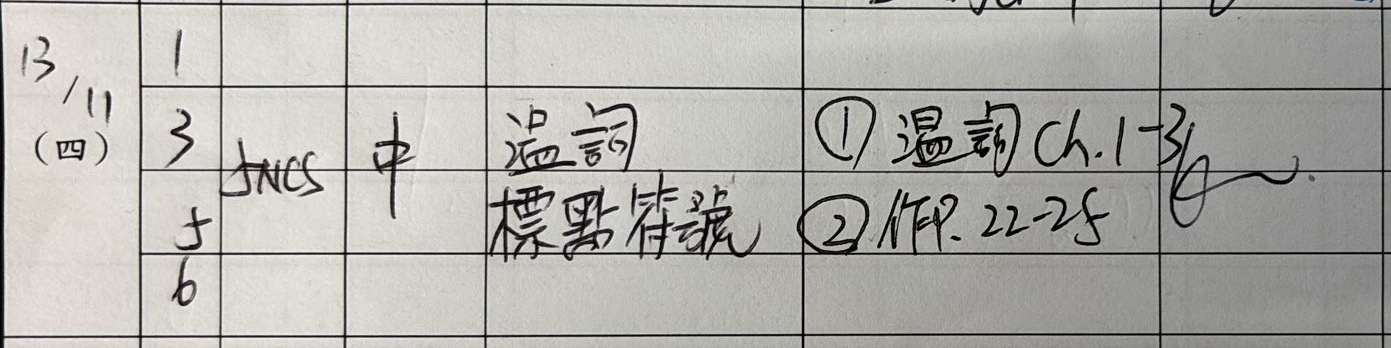 13/11
(四)
1
3
5
6
JNCS
中
溫詞
標點符號
① 溫詞 Ch.1-3
② 作P. 22-25